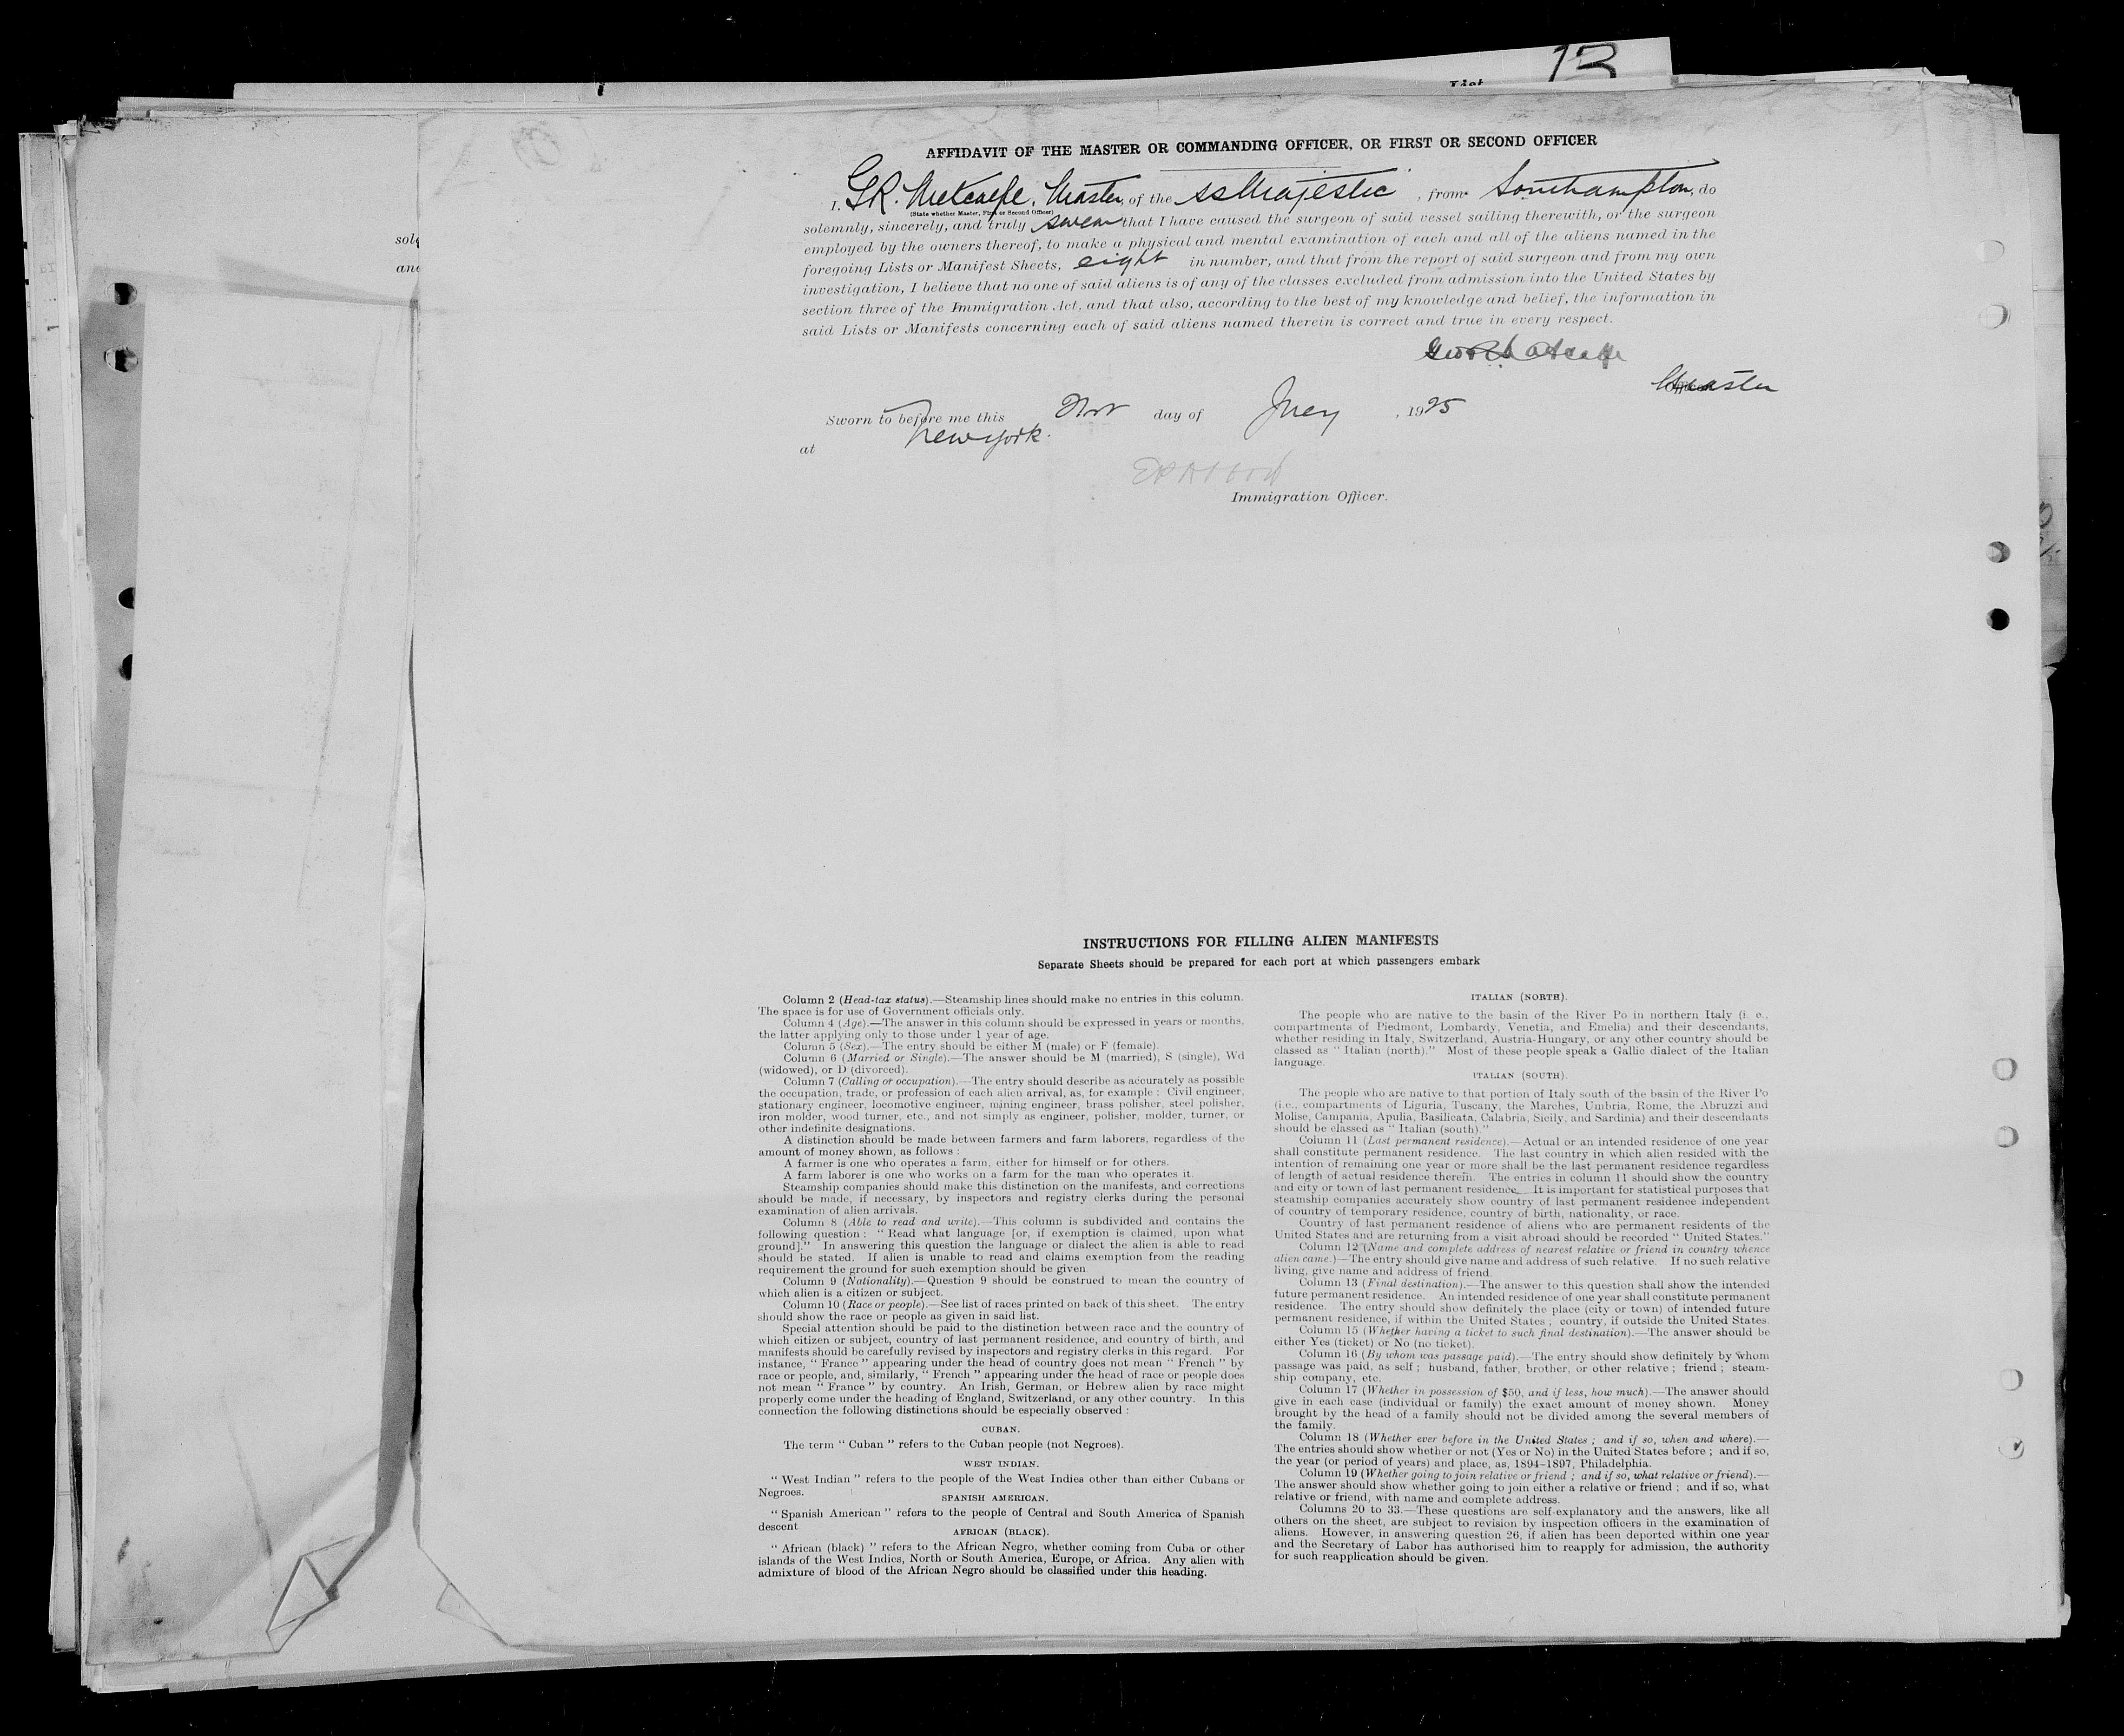 13
List
sole
and
AFFIDAVIT OF THE MASTER OR COMMANDING OFFICER, OR FIRST OR SECOND OFFICER
I, G.R. Metcalfe, Master, of the SS Majestic, from Southampton, do
(State whether Master, First or Second Officer)
solemnly, sincerely, and truly swear that I have caused the surgeon of said vessel sailing therewith, or the surgeon
employed by the owners thereof, to make a physical and mental examination of each and all of the aliens named in the
foregoing Lists or Manifest Sheets, eight in number, and that from the report of said surgeon and from my own
investigation, I believe that no one of said aliens is of any of the classes excluded from admission into the United States by
section three of the Immigration Act, and that also, according to the best of my knowledge and belief, the information in
said Lists or Manifests concerning each of said aliens named therein is correct and true in every respect.
Geo R Metcalfe
Master
Sworn to before me this day of , 1925
at New York.
Immigration Officer.
INSTRUCTIONS FOR FILLING ALIEN MANIFESTS
Separate Sheets should be prepared for each port at which passengers embark
Column 2 (Head-tax status).—Steamship lines should make no entries in this column.
The space is for use of Government officials only.
Column 4 (Age).—The answer in this column should be expressed in years or months,
the latter applying only to those under 1 year of age.
Column 5 (Sex).—The entry should be either M (male) or F (female).
Column 6 (Married or Single).—The answer should be M (married), S (single), Wd
(widowed), or D (divorced).
Column 7 (Calling or occupation).—The entry should describe as accurately as possible
the occupation, trade, or profession of each alien arrival, as, for example : Civil engineer,
stationary engineer, locomotive engineer, mining engineer, brass polisher, steel polisher,
iron molder, wood turner, etc., and not simply as engineer, polisher, molder, turner, or
other indefinite designations.
A distinction should be made between farmers and farm laborers, regardless of the
amount of money shown, as follows :
A farmer is one who operates a farm, either for himself or for others.
A farm laborer is one who works on a farm for the man who operates it.
Steamship companies should make this distinction on the manifests, and corrections
should be made, if necessary, by inspectors and registry clerks during the personal
examination of alien arrivals.
Column 8 (Able to read and write).—This column is subdivided and contains the
following question : " Read what language [or, if exemption is claimed, upon what
ground]." In answering this question the language or dialect the alien is able to read
should be stated. If alien is unable to read and claims exemption from the reading
requirement the ground for such exemption should be given
Column 9 (Nationality).—Question 9 should be construed to mean the country of
which alien is a citizen or subject.
Column 10 (Race or people).—See list of races printed on back of this sheet. The entry
should show the race or people as given in said list.
Special attention should be paid to the distinction between race and the country of
which citizen or subject, country of last permanent residence, and country of birth, and
manifests should be carefully revised by inspectors and registry clerks in this regard. For
instance, " France " appearing under the head of country does not mean " French " by
race or people, and, similarly, " French " appearing under the head of race or people does
not mean " France " by country. An Irish, German, or Hebrew alien by race might
properly come under the heading of England, Switzerland, or any other country. In this
connection the following distinctions should be especially observed :
CUBAN.
The term " Cuban " refers to the Cuban people (not Negroes).
WEST INDIAN.
" West Indian " refers to the people of the West Indies other than either Cubans or
Negroes.
SPANISH AMERICAN.
" Spanish American " refers to the people of Central and South America of Spanish
descent
AFRICAN (BLACK).
" African (black) " refers to the African Negro, whether coming from Cuba or other
islands of the West Indies, North or South America, Europe, or Africa. Any alien with
admixture of blood of the African Negro should be classified under this heading.
ITALIAN (NORTH).
The people who are native to the basin of the River Po in northern Italy (i. e.,
compartments of Piedmont, Lombardy, Venetia, and Emelia) and their descendants,
whether residing in Italy, Switzerland, Austria-Hungary, or any other country should be
classed as " Italian (north)." Most of these people speak a Gallic dialect of the Italian
language.
ITALIAN (SOUTH).
The people who are native to that portion of Italy south of the basin of the River Po
(i.e., compartments of Liguria, Tuscany, the Marches, Umbria, Rome, the Abruzzi and
Molise, Campania, Apulia, Basilicata, Calabria, Sicily, and Sardinia) and their descendants
should be classed as " Italian (south)."
Column 11 (Last permanent residence).—Actual or an intended residence of one year
shall constitute permanent residence. The last country in which alien resided with the
intention of remaining one year or more shall be the last permanent residence regardless
of length of actual residence therein. The entries in column 11 should show the country
and city or town of last permanent residence. It is important for statistical purposes that
steamship companies accurately show country of last permanent residence independent
of country of temporary residence, country of birth, nationality, or race.
Country of last permanent residence of aliens who are permanent residents of the
United States and are returning from a visit abroad should be recorded " United States."
Column 12 (Name and complete address of nearest relative or friend in country whence
alien came.)—The entry should give name and address of such relative. If no such relative
living, give name and address of friend.
Column 13 (Final destination).—The answer to this question shall show the intended
future permanent residence. An intended residence of one year shall constitute permanent
residence. The entry should show definitely the place (city or town) of intended future
permanent residence, if within the United States ; country, if outside the United States.
Column 15 (Whether having a ticket to such final destination).—The answer should be
either Yes (ticket) or No (no ticket).
Column 16 (By whom was passage paid).—The entry should show definitely by whom
passage was paid, as self ; husband, father, brother, or other relative ; friend ; steam-
ship company, etc.
Column 17 (Whether in possession of $50, and if less, how much).—The answer should
give in each case (individual or family) the exact amount of money shown. Money
brought by the head of a family should not be divided among the several members of
the family.
Column 18 (Whether ever before in the United States ; and if so, when and where).—
The entries should show whether or not (Yes or No) in the United States before ; and if so,
the year (or period of years) and place, as, 1894-1897, Philadelphia.
Column 19 (Whether going to join relative or friend ; and if so, what relative or friend).—
The answer should show whether going to join either a relative or friend ; and if so, what
relative or friend, with name and complete address.
Columns 20 to 33.—These questions are self-explanatory and the answers, like all
others on the sheet, are subject to revision by inspection officers in the examination of
aliens. However, in answering question 26, if alien has been deported within one year
and the Secretary of Labor has authorised him to reapply for admission, the authority
for such reapplication should be given.